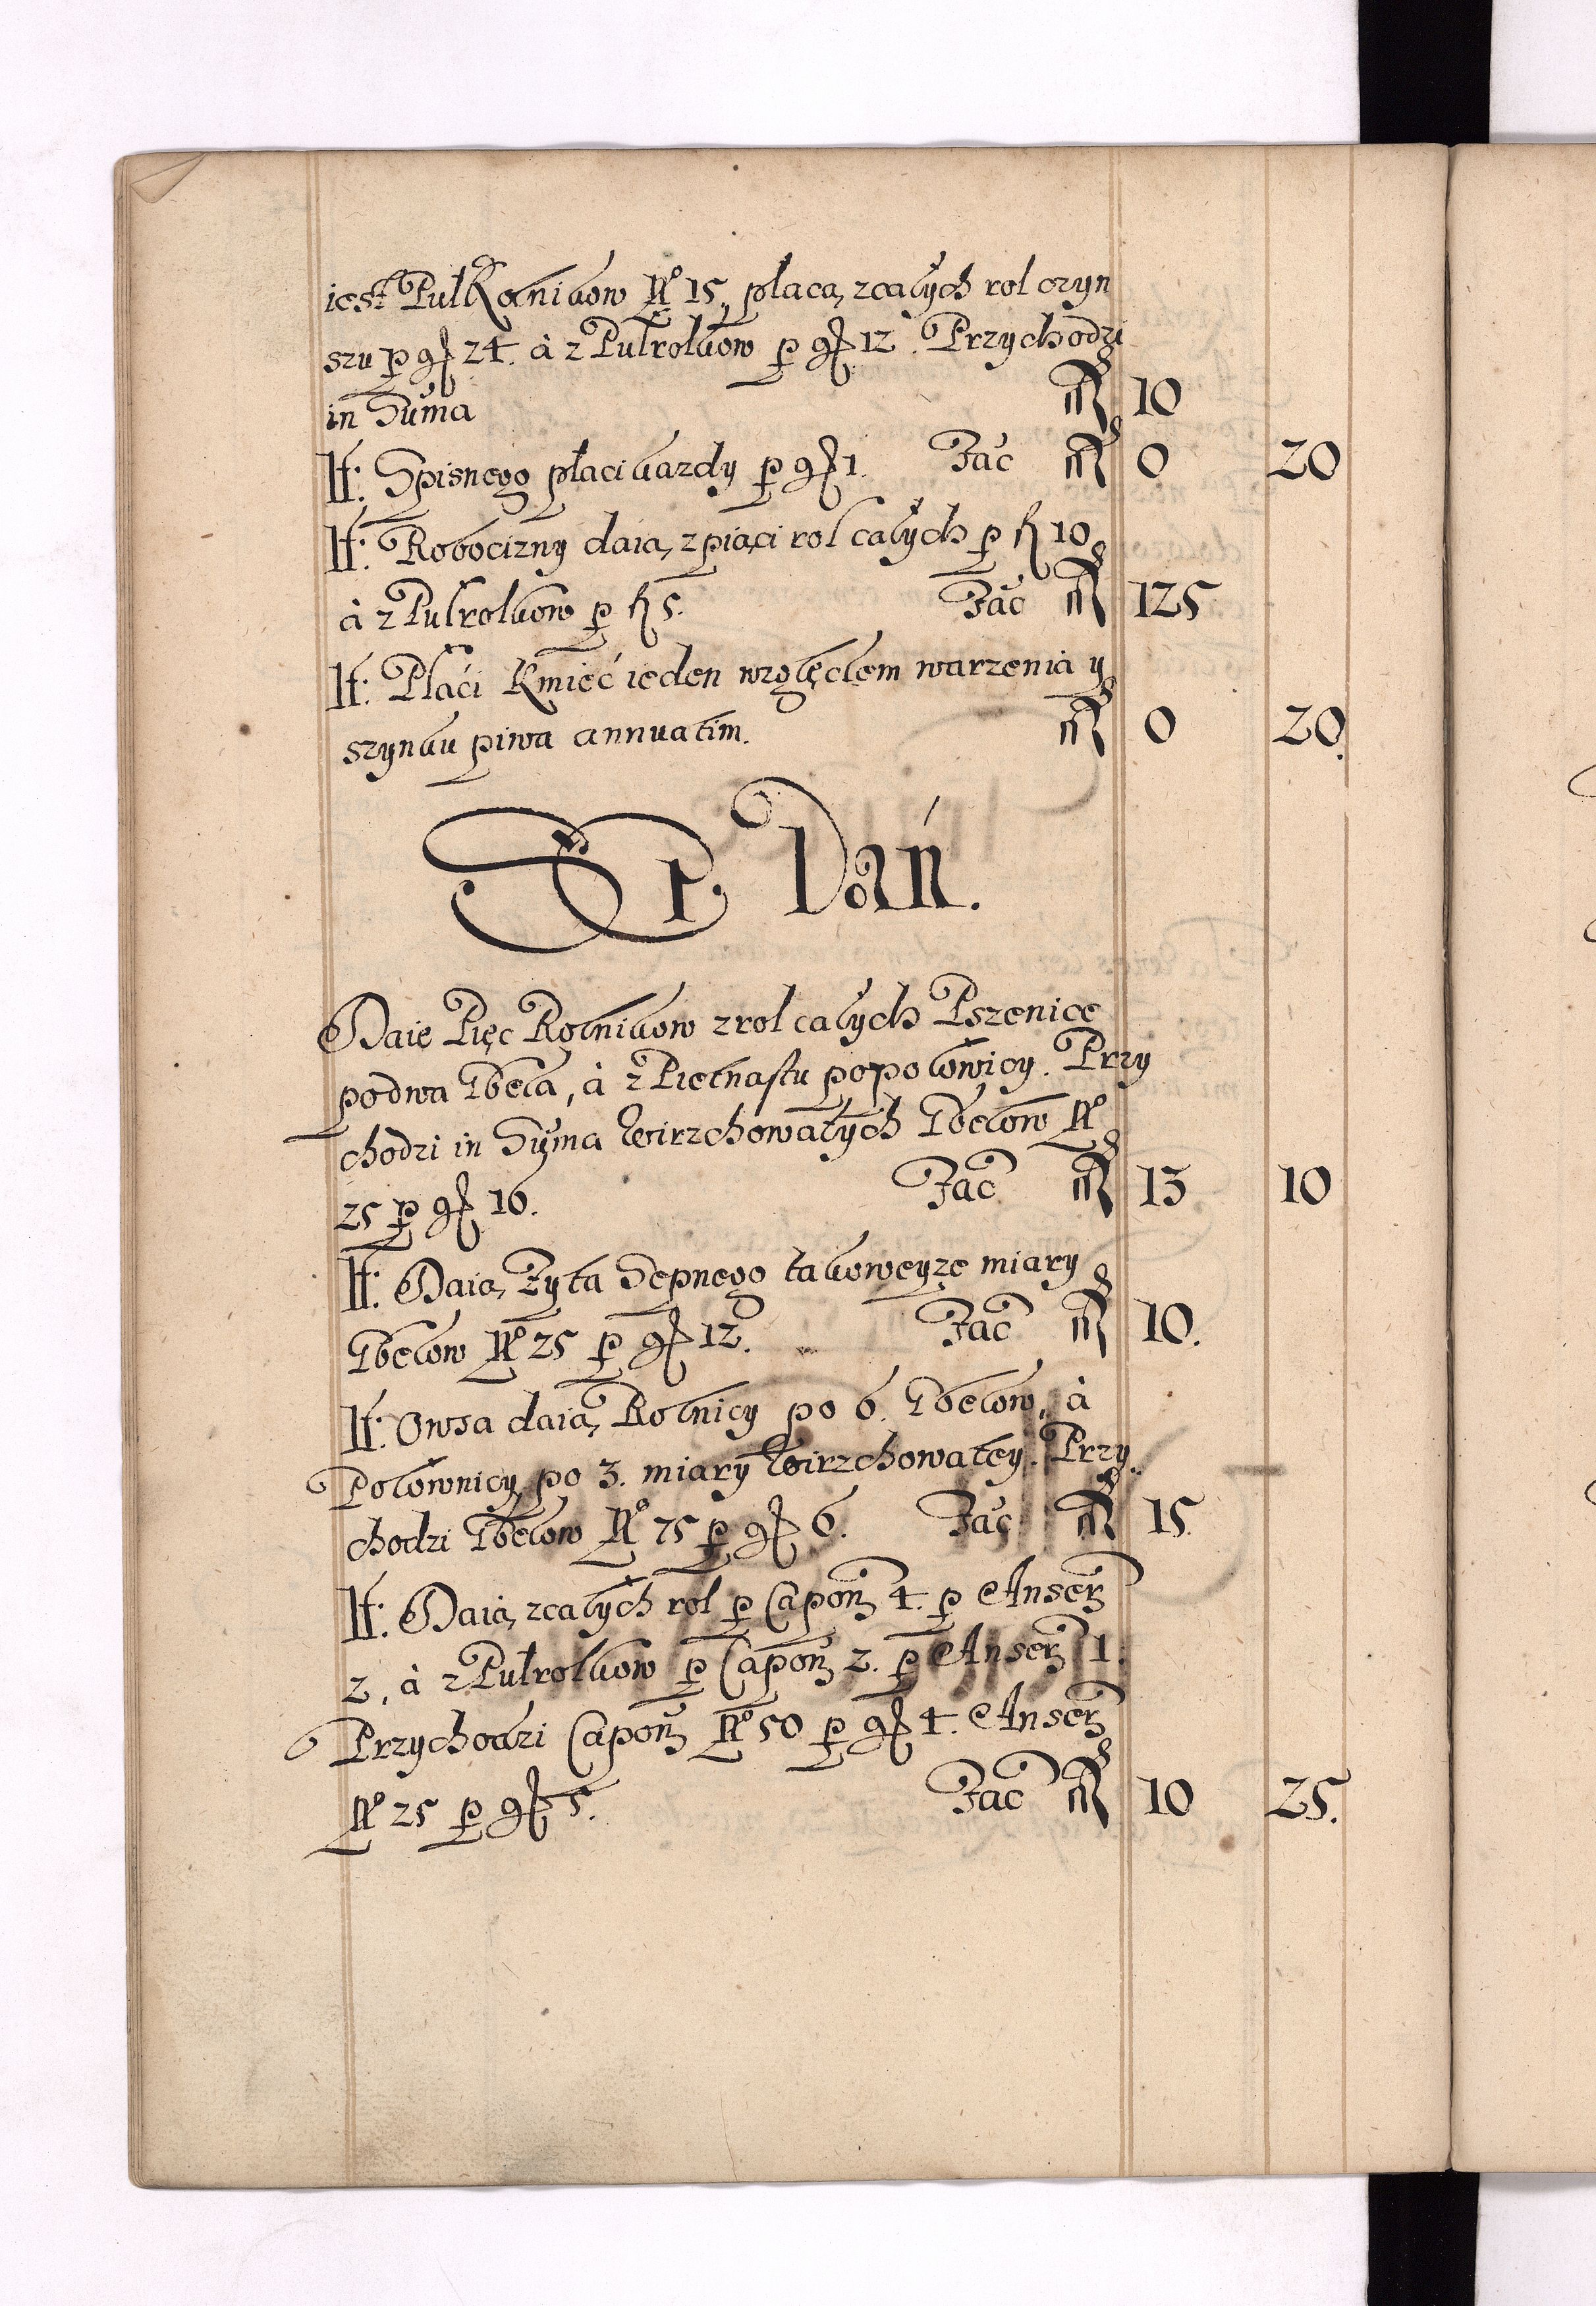 iest PulRolnikow No 15, płacą z całych rol czyn
szu p gr 24. à z Pulrolkow p gr 12. Przychodzi
in Suma fl 10
It: Spisnego płaci kazdy p gr 1. Facit fl 0 20
It: Robocizny daią z piąci rol całych p fl 10
à z Pulrolkow p fl 5. Facit fl 125
It: Płaći Kmieć ieden wzglęḋem warzenia y
szynku piwa annuatim. fl 0 20.
Dań.
Daie Pięc Rolnikow z rol całych Pszenice
po dwa Gbela, à z Pietnastu po połowicy. Przy
chodzi in Suma Wirzchowatych Gbelow No
25 p gr 16. Fac fl 13 10
It: Daią Zyta Sepnego takoweyze miary
Gbelow No 25 p gr 12. Fac fl 10.
It: Owsa daią Rolnicy po 6. Gbelow, à
Połownicy po 3. miary Wirzchowatey. Przy
chodzi Gbelow No 75 p gr 6. Fac fl 15.
It: Daią z całych rol p Capon 4. p Anser
2, à z Pulrolkow p Capon 2. p Anser 1.
Przychodzi Capon No 50 p gr 4. Anser
No 25 p gr 5. Fac fl 10 25.